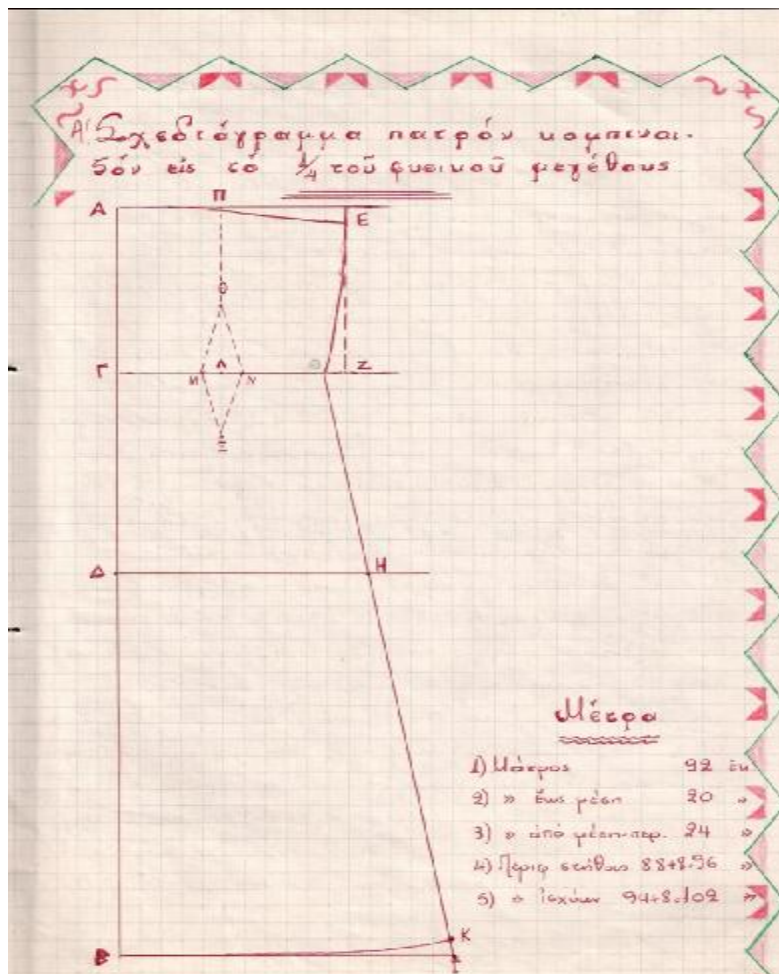 Α! Σχεδιόγραμμα πατρόν κομπιναι-
ζόν εις τό 1/4 τοῦ φυσικοῦ μεγέθους
Π
Α
Ε
Ο
Γ
Μ
Λ
Ν
Θ
Ζ
Ξ
Δ
Η
Μέτρα
1) Μάκρος 92 ἑκ
2) » ἕως μέση 20 »
3) » ἀπό μέση-περ. 24 »
4) Περιφ στήθους 88+8.96 »
5) » ἰσχύων 94+8.102 »
Κ
Β
Ι